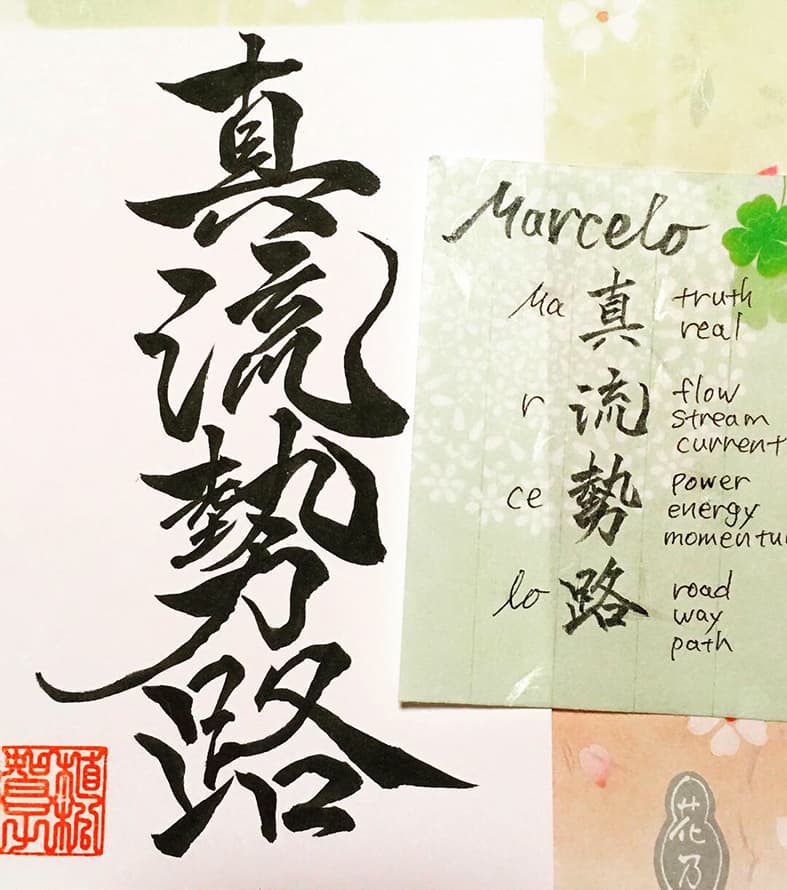 真
流
勢
路
Marcelo
Ma 真 truth
real
r 流 flow
stream
current
ce 勢 power
energy
momentu
lo 路 road
way
path
植松
智子
花乃